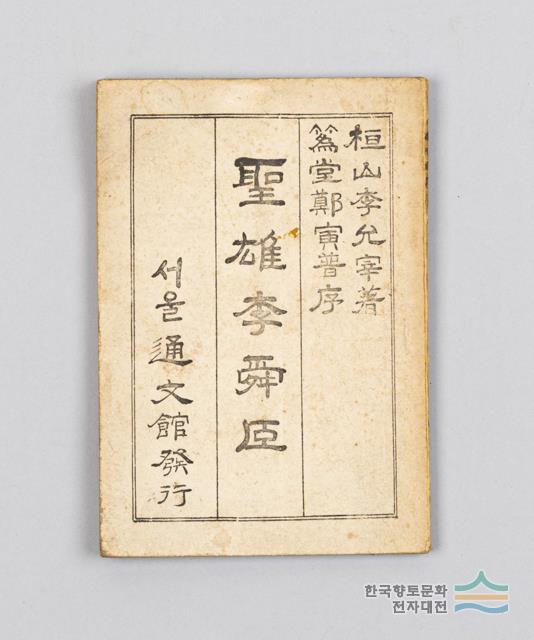 桓山李允宰著
爲堂鄭寅普序
聖雄李舜臣
서울通文館發行
한국향토문화
전자대전